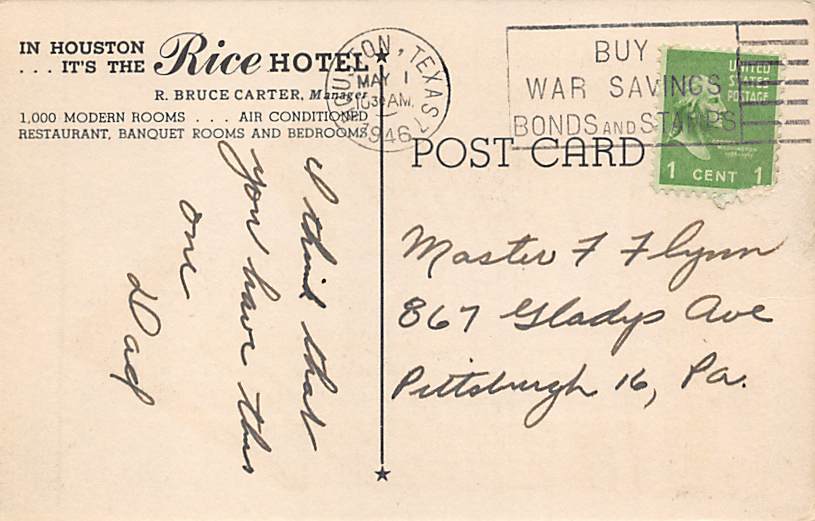 IN HOUSTON
. . . IT'S THE Rice HOTEL
R. BRUCE CARTER, Manager
1,000 MODERN ROOMS . . . AIR CONDITIONED
RESTAURANT, BANQUET ROOMS AND BEDROOMS
HOUSTON, TEXAS
MAY 1
10 30 AM
1946
BUY
WAR SAVINGS
BONDS AND STAMPS
UNITED
STATES
POSTAGE
1 CENT 1
POST CARD
I think that
you have this
one
Dad
Master F Flynn
867 Gladys Ave
Pittsburgh 16, Pa.